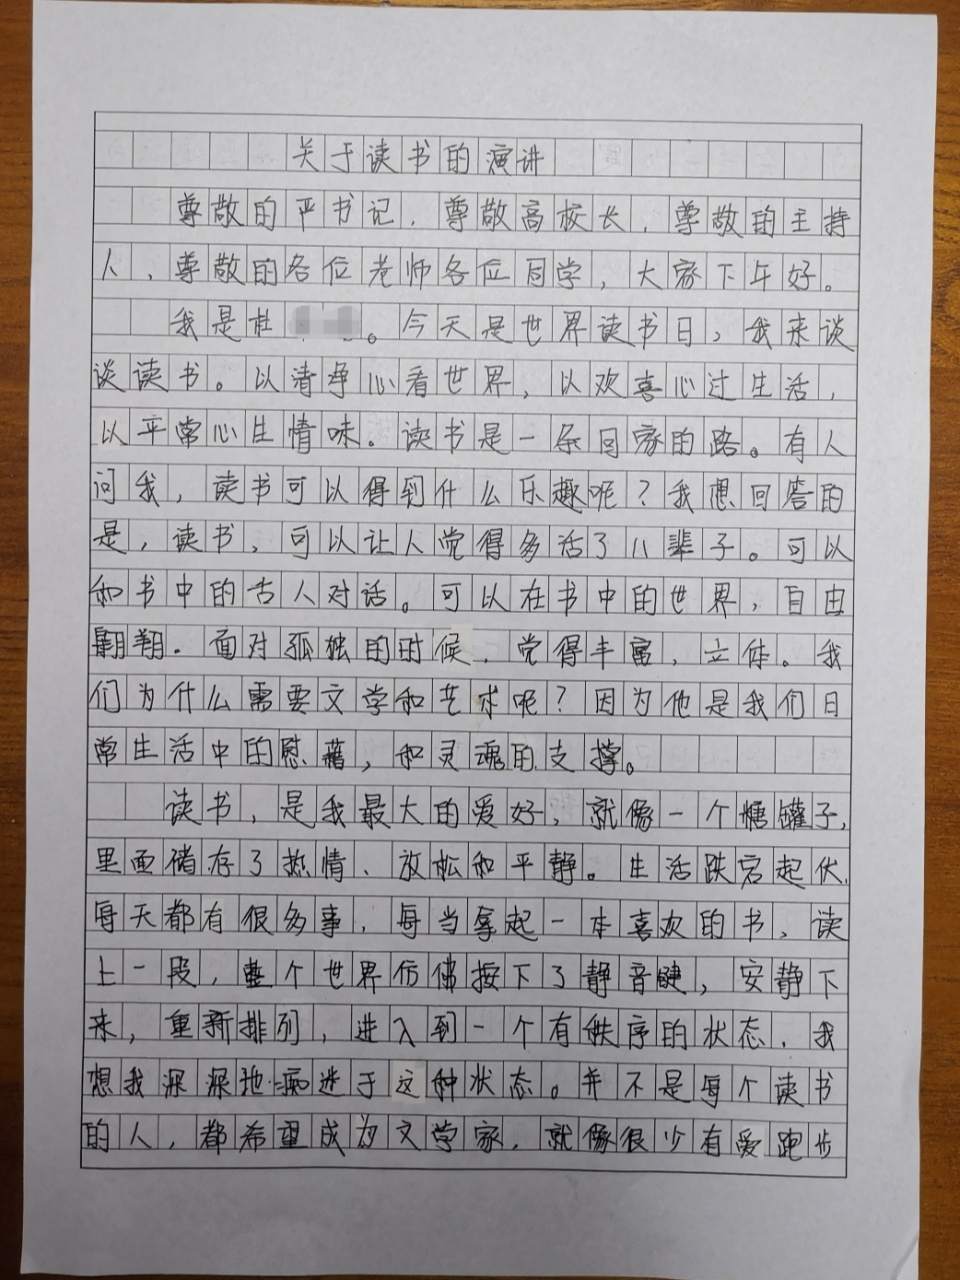 关于读书的演讲
尊敬的严书记，尊敬高校长，尊敬的主持
人，尊敬的各位老师各位同学，大家下午好。
我是杜。今天是世界读书日，我来谈
谈读书。以清净心看世界，以欢喜心过生活，
以平常心生情味。读书是一条回家的路。有人
问我，读书可以得到什么乐趣呢？我想回答的
是，读书，可以让人觉得多活了八辈子。可以
和书中的古人对话。可以在书中的世界，自由
翱翔。面对孤独的时候，觉得丰富，立体。我
们为什么需要文学和艺术呢？因为他是我们日
常生活中的慰藉，和灵魂的支撑。
读书，是我最大的爱好，就像一个糖罐子，
里面储存了热情、放松和平静。生活跌宕起伏，
每天都有很多事，每当拿起一本喜欢的书，读
上一段，整个世界仿佛按下了静音键，安静下
来，重新排列，进入到一个有秩序的状态，我
想我深深地痴迷于这种状态。并不是每个读书
的人，都希望成为文学家，就像很少有爱跑步